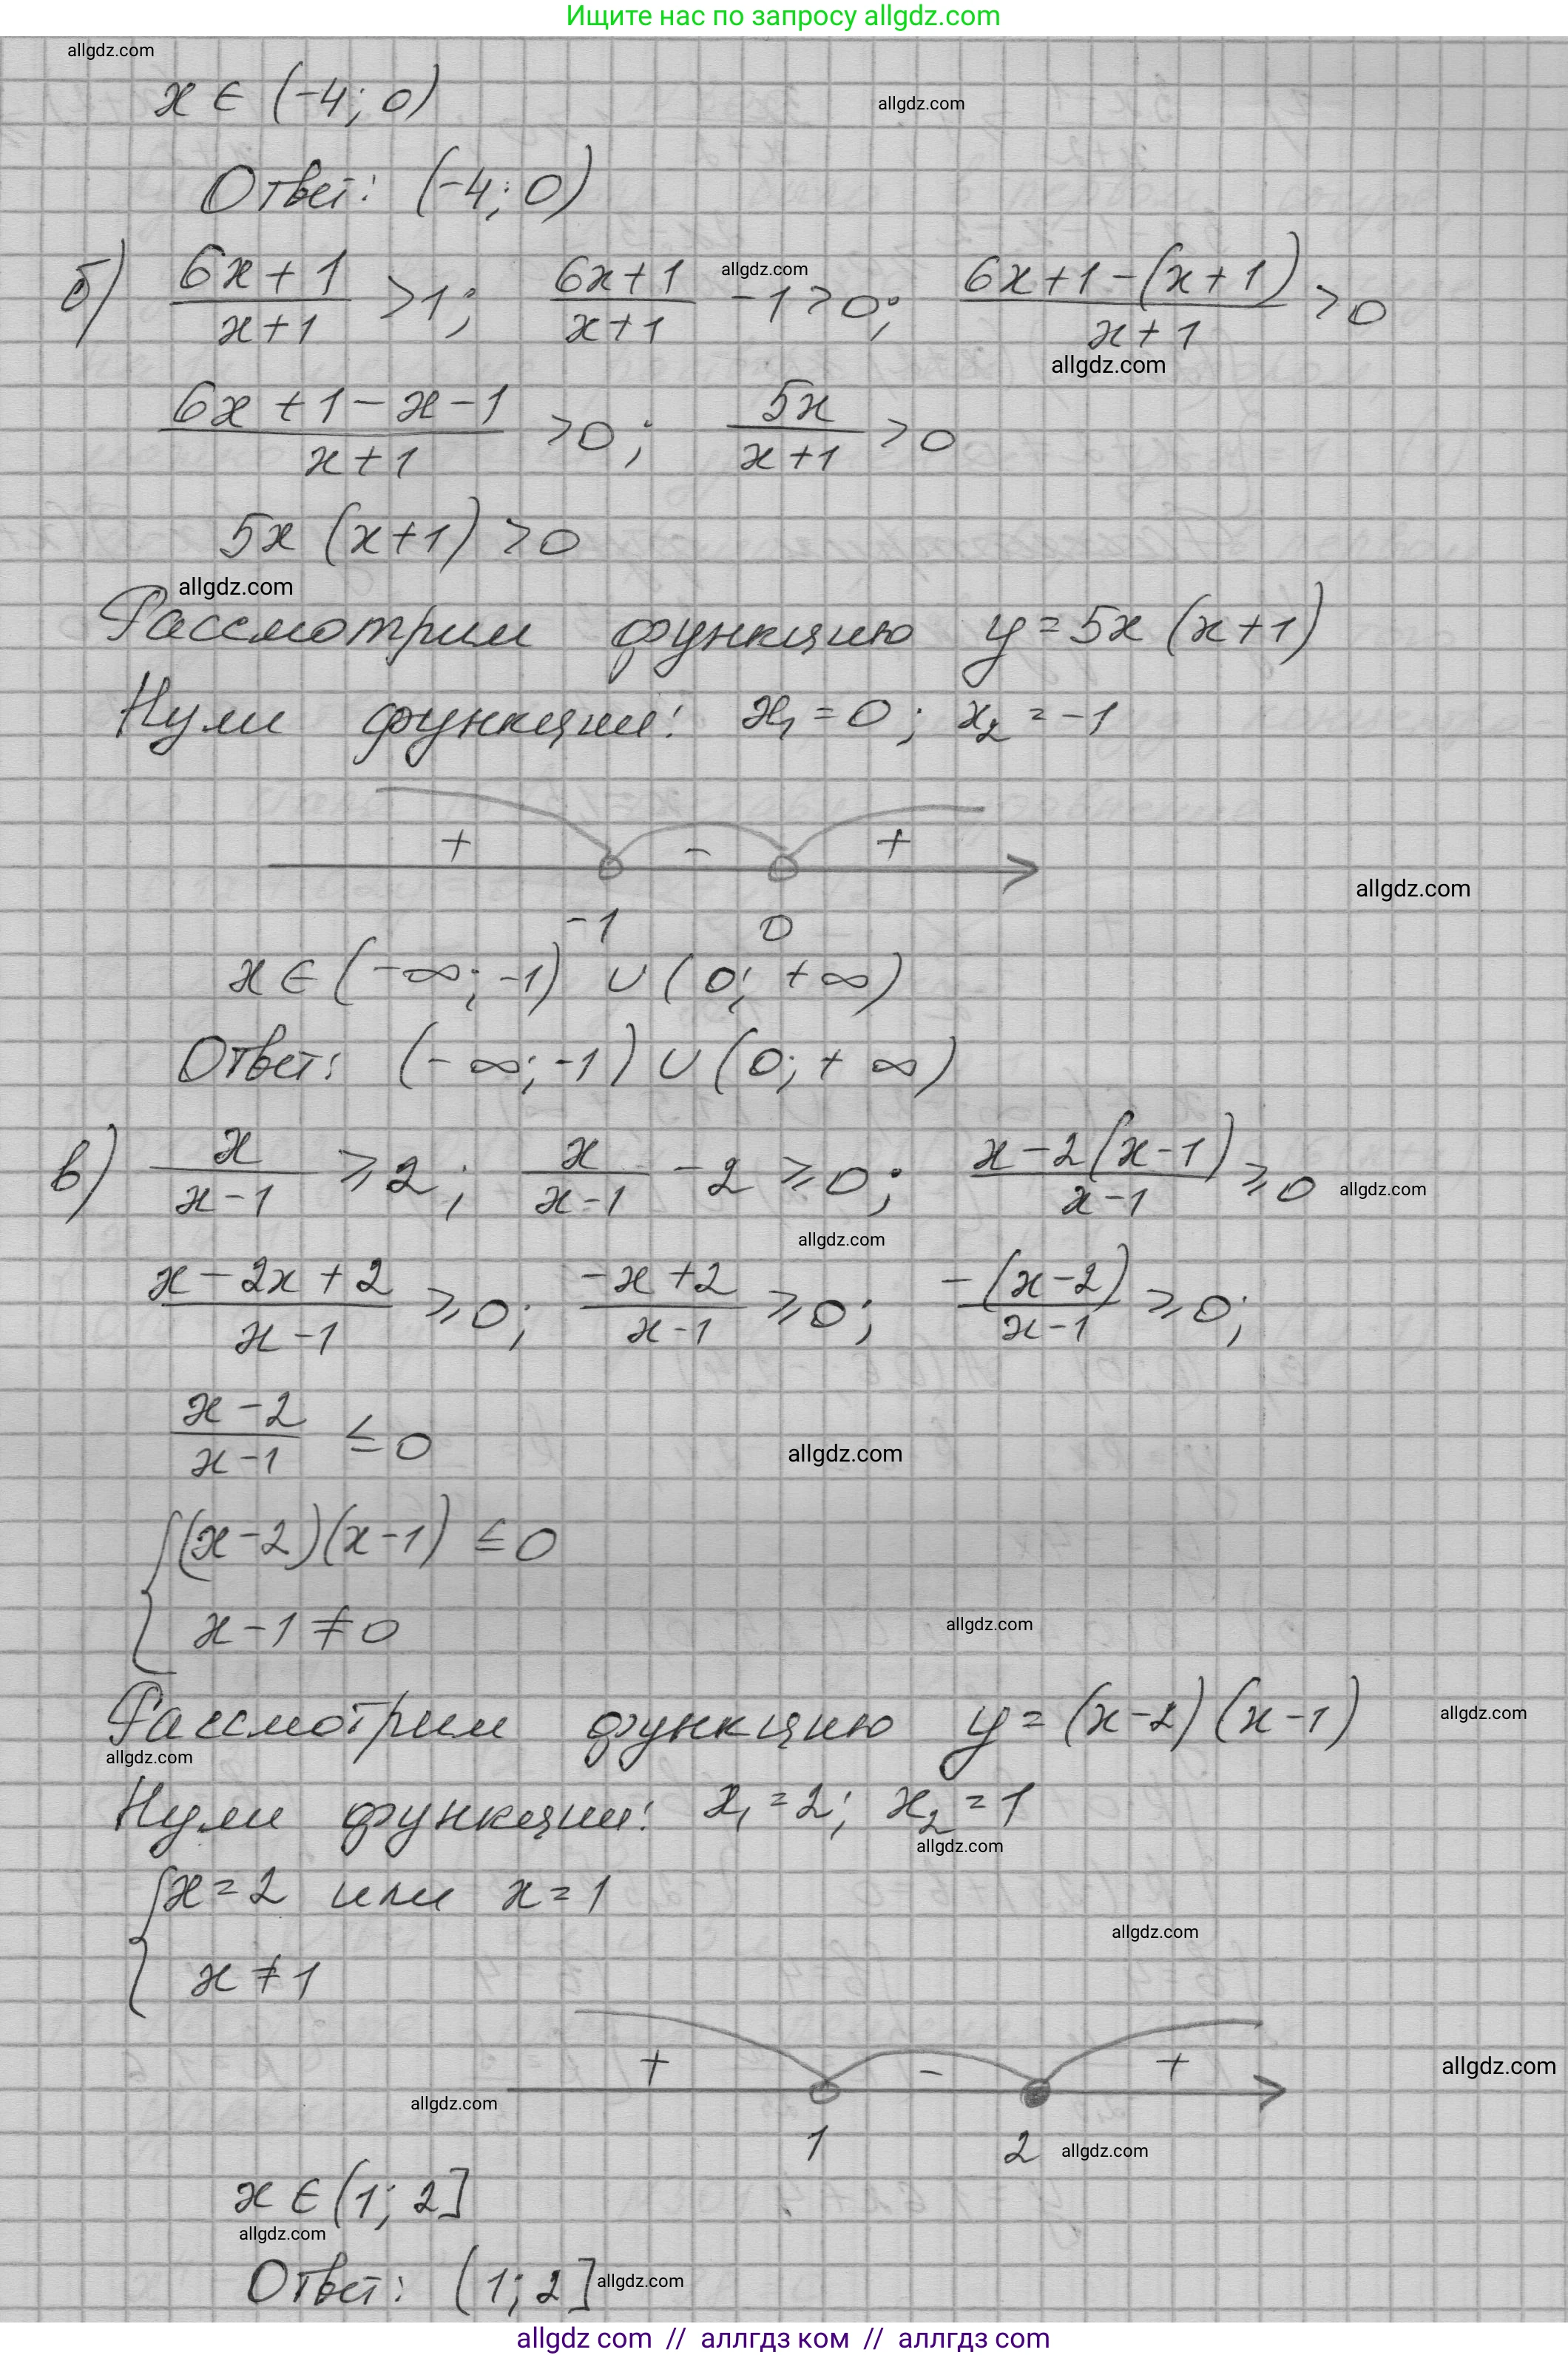 Ищите нас по запросу allgdz.com
allgdz.com
x ∈ (-4; 0)
allgdz.com
Ответ: (-4; 0)
б) (6x+1)/(x+1) >1; (6x+1)/(x+1) -1>0; (6x+1-(x+1))/(x+1) >0
allgdz.com
allgdz.com
(6x+1-x-1)/(x+1) >0; 5x/(x+1) >0
5x (x+1) >0
allgdz.com
Рассмотрим функцию y=5x (x+1)
Нули функции: x₁=0; x₂=-1
+ - +
allgdz.com
-1 0
x ∈ (-∞; -1) ∪ (0; +∞)
Ответ: (-∞; -1) ∪ (0; +∞)
в) x/(x-1) ⩾2; x/(x-1) -2⩾0; (x-2(x-1))/(x-1) ⩾0
allgdz.com
allgdz.com
(x-2x+2)/(x-1) ⩾0; (-x+2)/(x-1) ⩾0; -(x-2)/(x-1) ⩾0;
(x-2)/(x-1) ≤0
allgdz.com
{(x-2)(x-1) ≤0
x-1≠0
allgdz.com
Рассмотрим функцию y=(x-2)(x-1)
allgdz.com
allgdz.com
Нули функции: x₁=2; x₂=1
allgdz.com
{x=2 или x=1
allgdz.com
x≠1
+ - +
allgdz.com
allgdz.com
1 2
allgdz.com
x ∈ (1; 2]
allgdz.com
Ответ: (1; 2]
allgdz.com
allgdz com // аллгдз ком // аллгдз com